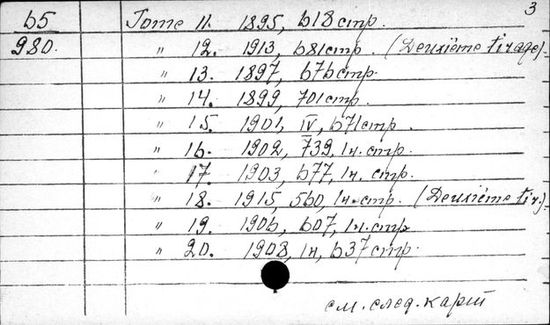 3
65 Tome 11. 1895, 618 стр.
980. " 12. 1913, 681 стр. (Deuxième tirage).
" 13. 1897, 676 стр.
" 14. 1899, 701 стр.
" 15. 1901, IV, 671 стр.
" 16. 1902, 739, 1 н. стр.
" 17. 1903, 677, 1 н. стр.
" 18. 1915, 560, 1 н. стр. (Deuxième tir.).
" 19. 1906, 607, 1 н. стр.
" 20. 1908, 1 н, 637 стр.
см. след. карт